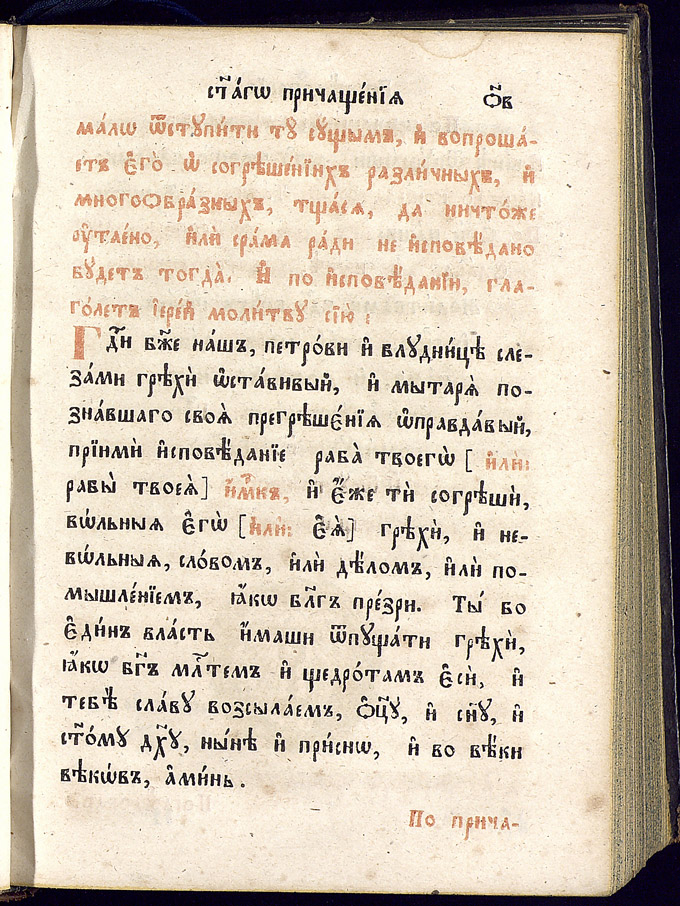 ст҃а́гѡ причаще́нїѧ ѻ҃в
ма́лѡ ѿстꙋпи́ти тꙋ̀ сꙋ́щымъ, и҆ вопроша́-
етъ є҆го̀ ѡ҆ согрѣше́нїихъ разли́чныхъ, и҆
многоѻбра́зныхъ, тща́сѧ, да ничто́же
ᲂу҆тае́но, и҆лѝ сра́ма ра́ди не и҆сповѣ́дано
бꙋ́детъ тогда̀. И҆ по и҆сповѣ́данїи, гла-
го́летъ і҆ере́й моли́твꙋ сїю̀:
Гдⷭ҇и бж҃е на́шъ, петро́ви и҆ блꙋдни́цѣ сле-
за́ми грѣхѝ ѡ҆ста́вивый, и҆ мытарѧ̀ по-
зна́вшаго своѧ̑ прегрѣшє́нїѧ ѡ҆правда́вый,
прїимѝ и҆сповѣ́данїе раба̀ твоегѡ̀ [и҆лѝ:
рабы̀ твоеѧ̀] и҆́мⷬ҇къ, и҆ є҆́же тѝ согрѣшѝ,
вѡ́льныѧ є҆гѡ̀ [и҆лѝ: є҆ѧ̀] грѣхѝ, и҆ не-
вѡ́льныѧ, сло́вомъ, и҆лѝ дѣ́ломъ, и҆лѝ по-
мышле́нїемъ, ꙗ҆́кѡ бл҃гъ пре́зри. Ты́ бо
є҆ди́нъ вла́сть и҆́маши ѿпꙋща́ти грѣхѝ,
ꙗ҆́кѡ бг҃ъ млⷭ҇темъ и҆ щедро́тамъ є҆сѝ, и҆
тебѣ̀ сла́вꙋ возсыла́емъ, ѻ҆ц҃ꙋ̀, и҆ сн҃ꙋ, и҆
ст҃о́мꙋ дх҃ꙋ, ны́нѣ и҆ при́снѡ, и҆ во вѣ́ки
вѣкѡ́въ, а҆ми́нь.
По прича-